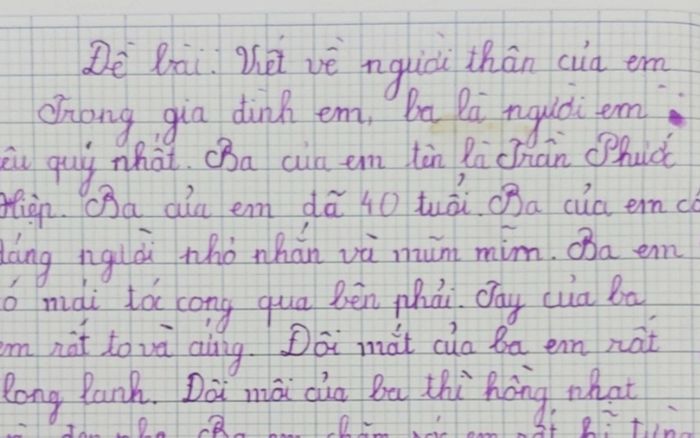 Đề bài: Viết về người thân của em
Trong gia đình em, ba là người em
êu quý nhất. Ba của em tên là Trần Phước
Hiệp. Ba của em đã 40 tuổi. Ba của em có
dáng người nhỏ nhắn và mũm mĩm. Ba em
ó mái tóc cong qua bên phải. Tay của ba
em rất to và cứng. Đôi mắt của ba em rất
long lanh. Đôi môi của ba thì hồng nhạt